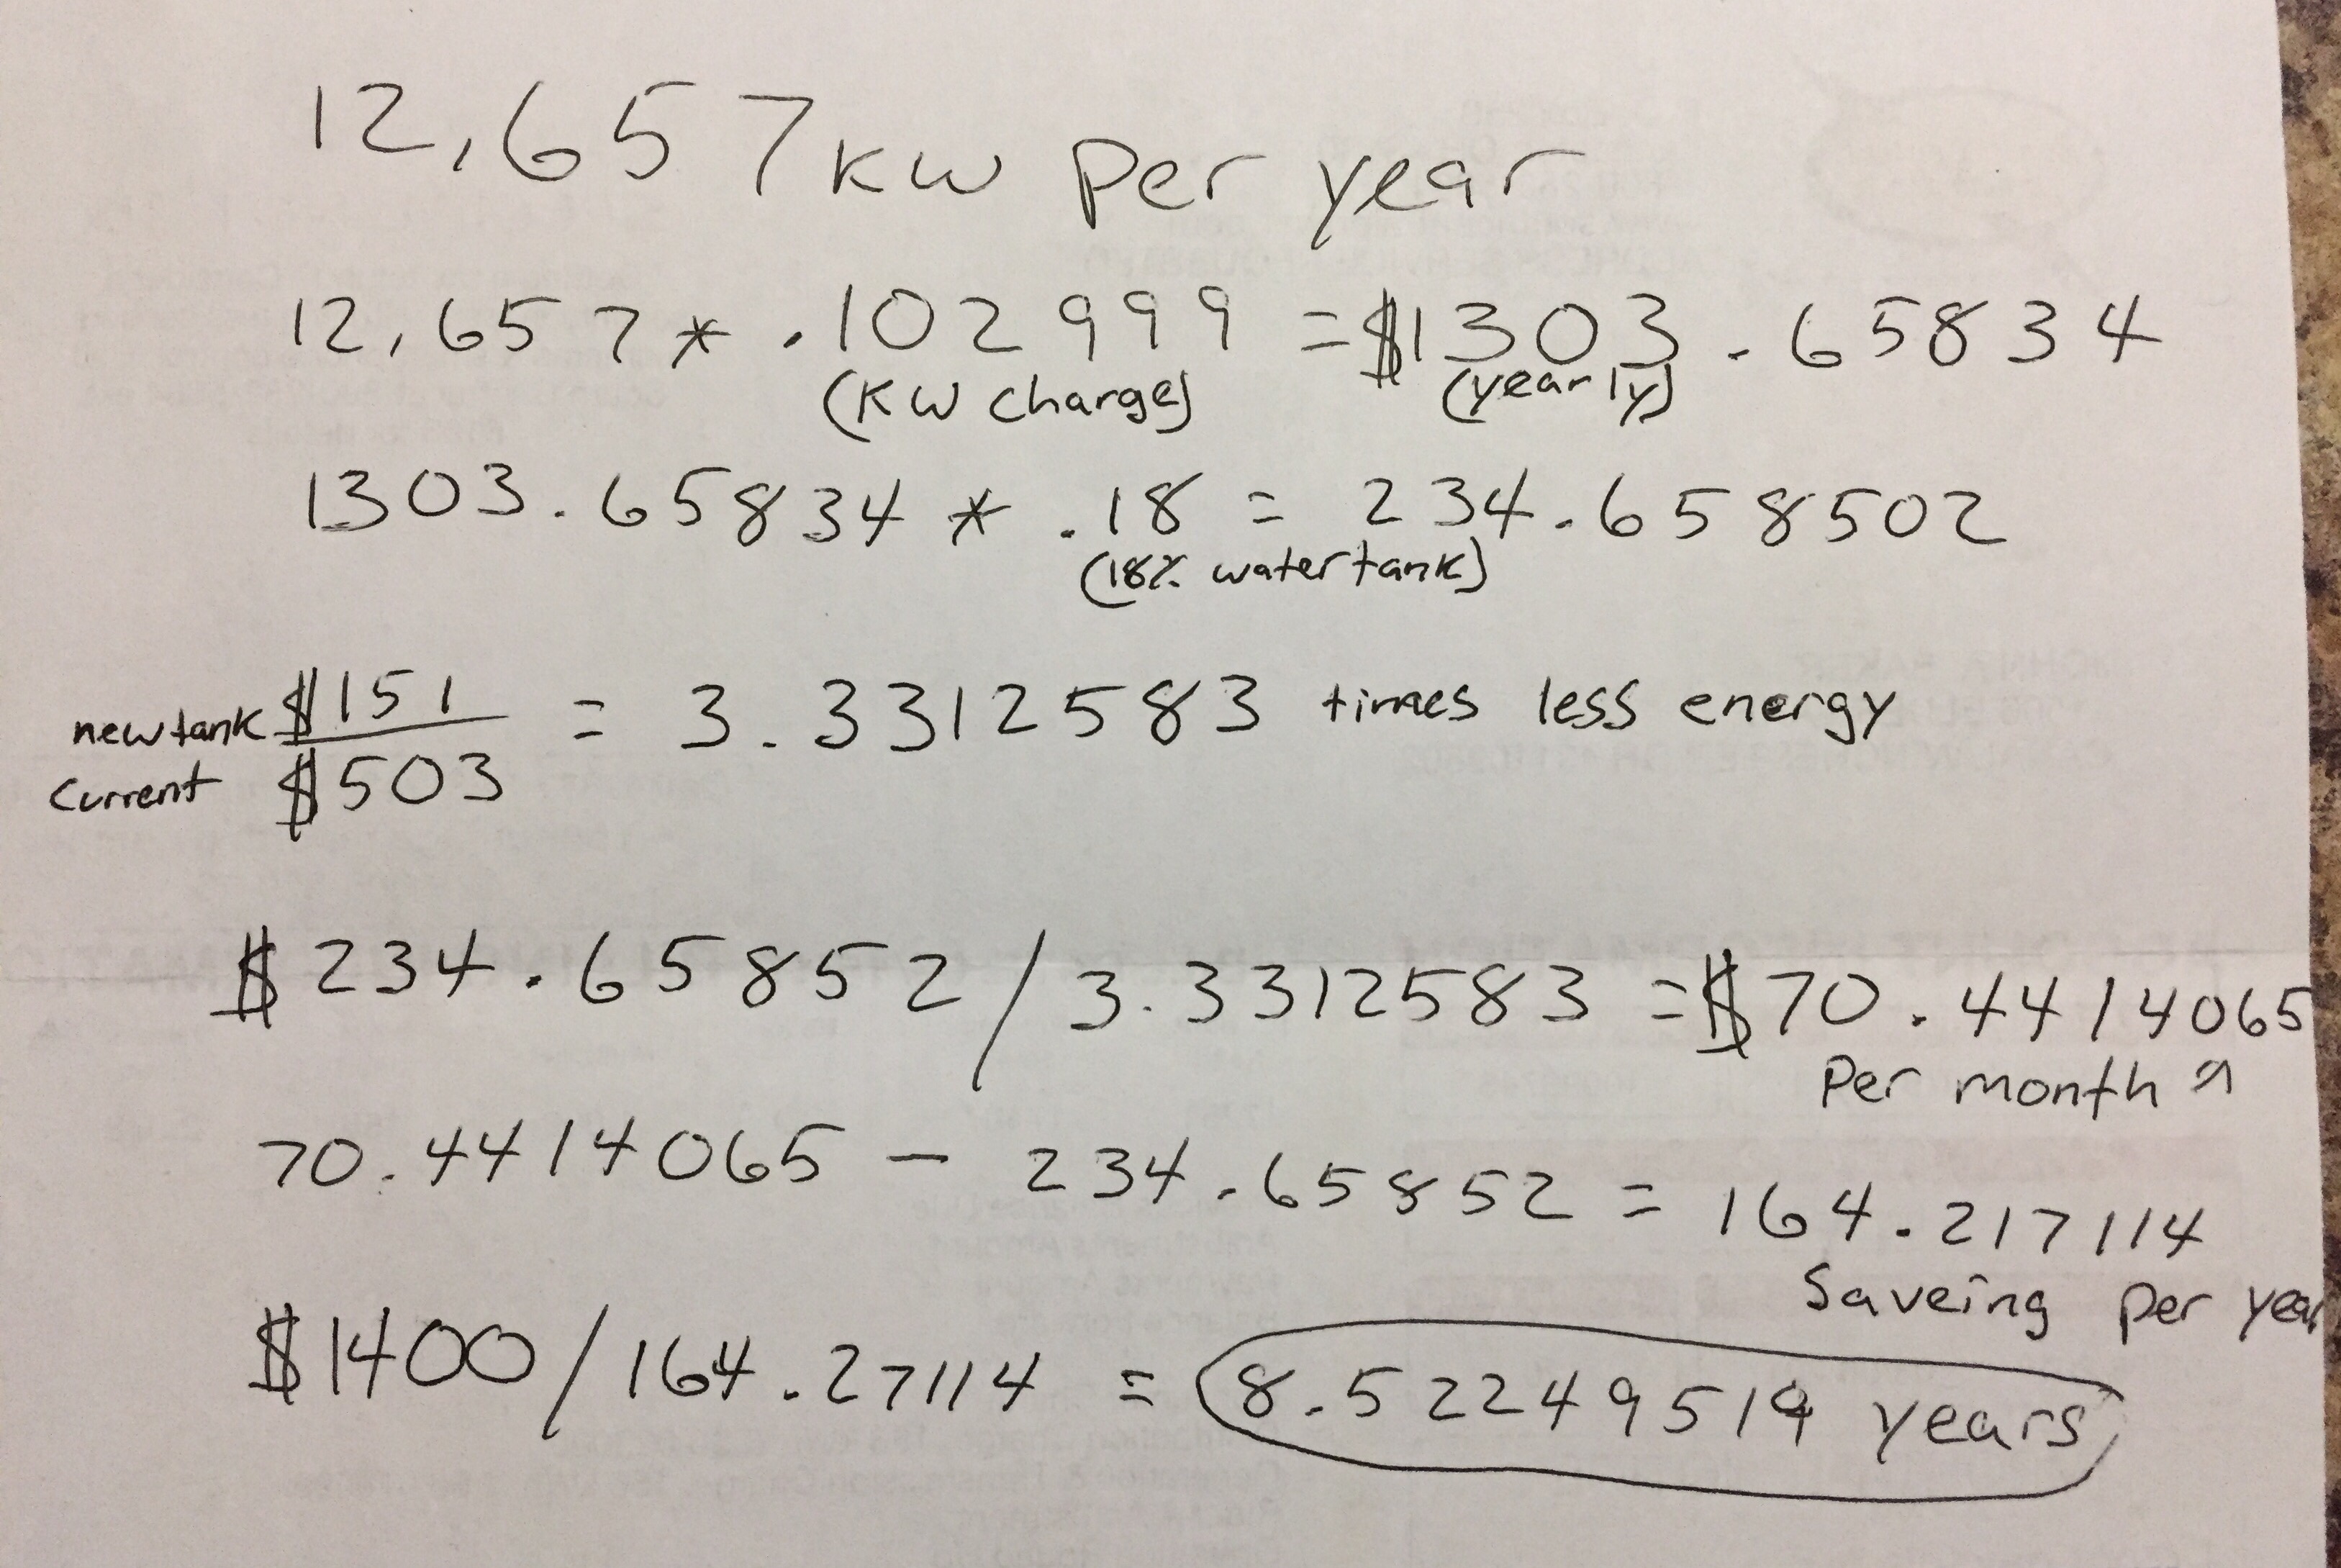 12,657 KW Per year
12,657 * .102999 = $1303.65834
(KW charge) (yearly)
1303.65834 * .18 = 234.658502
(18% water tank)
new tank $151 = 3.3312583 times less energy
Current $503
$234.65852 / 3.3312583 = $70.4414065
Per month
70.4414065 - 234.65852 = 164.217114
Saveing per year
$1400 / 164.27114 = 8.522495194 years